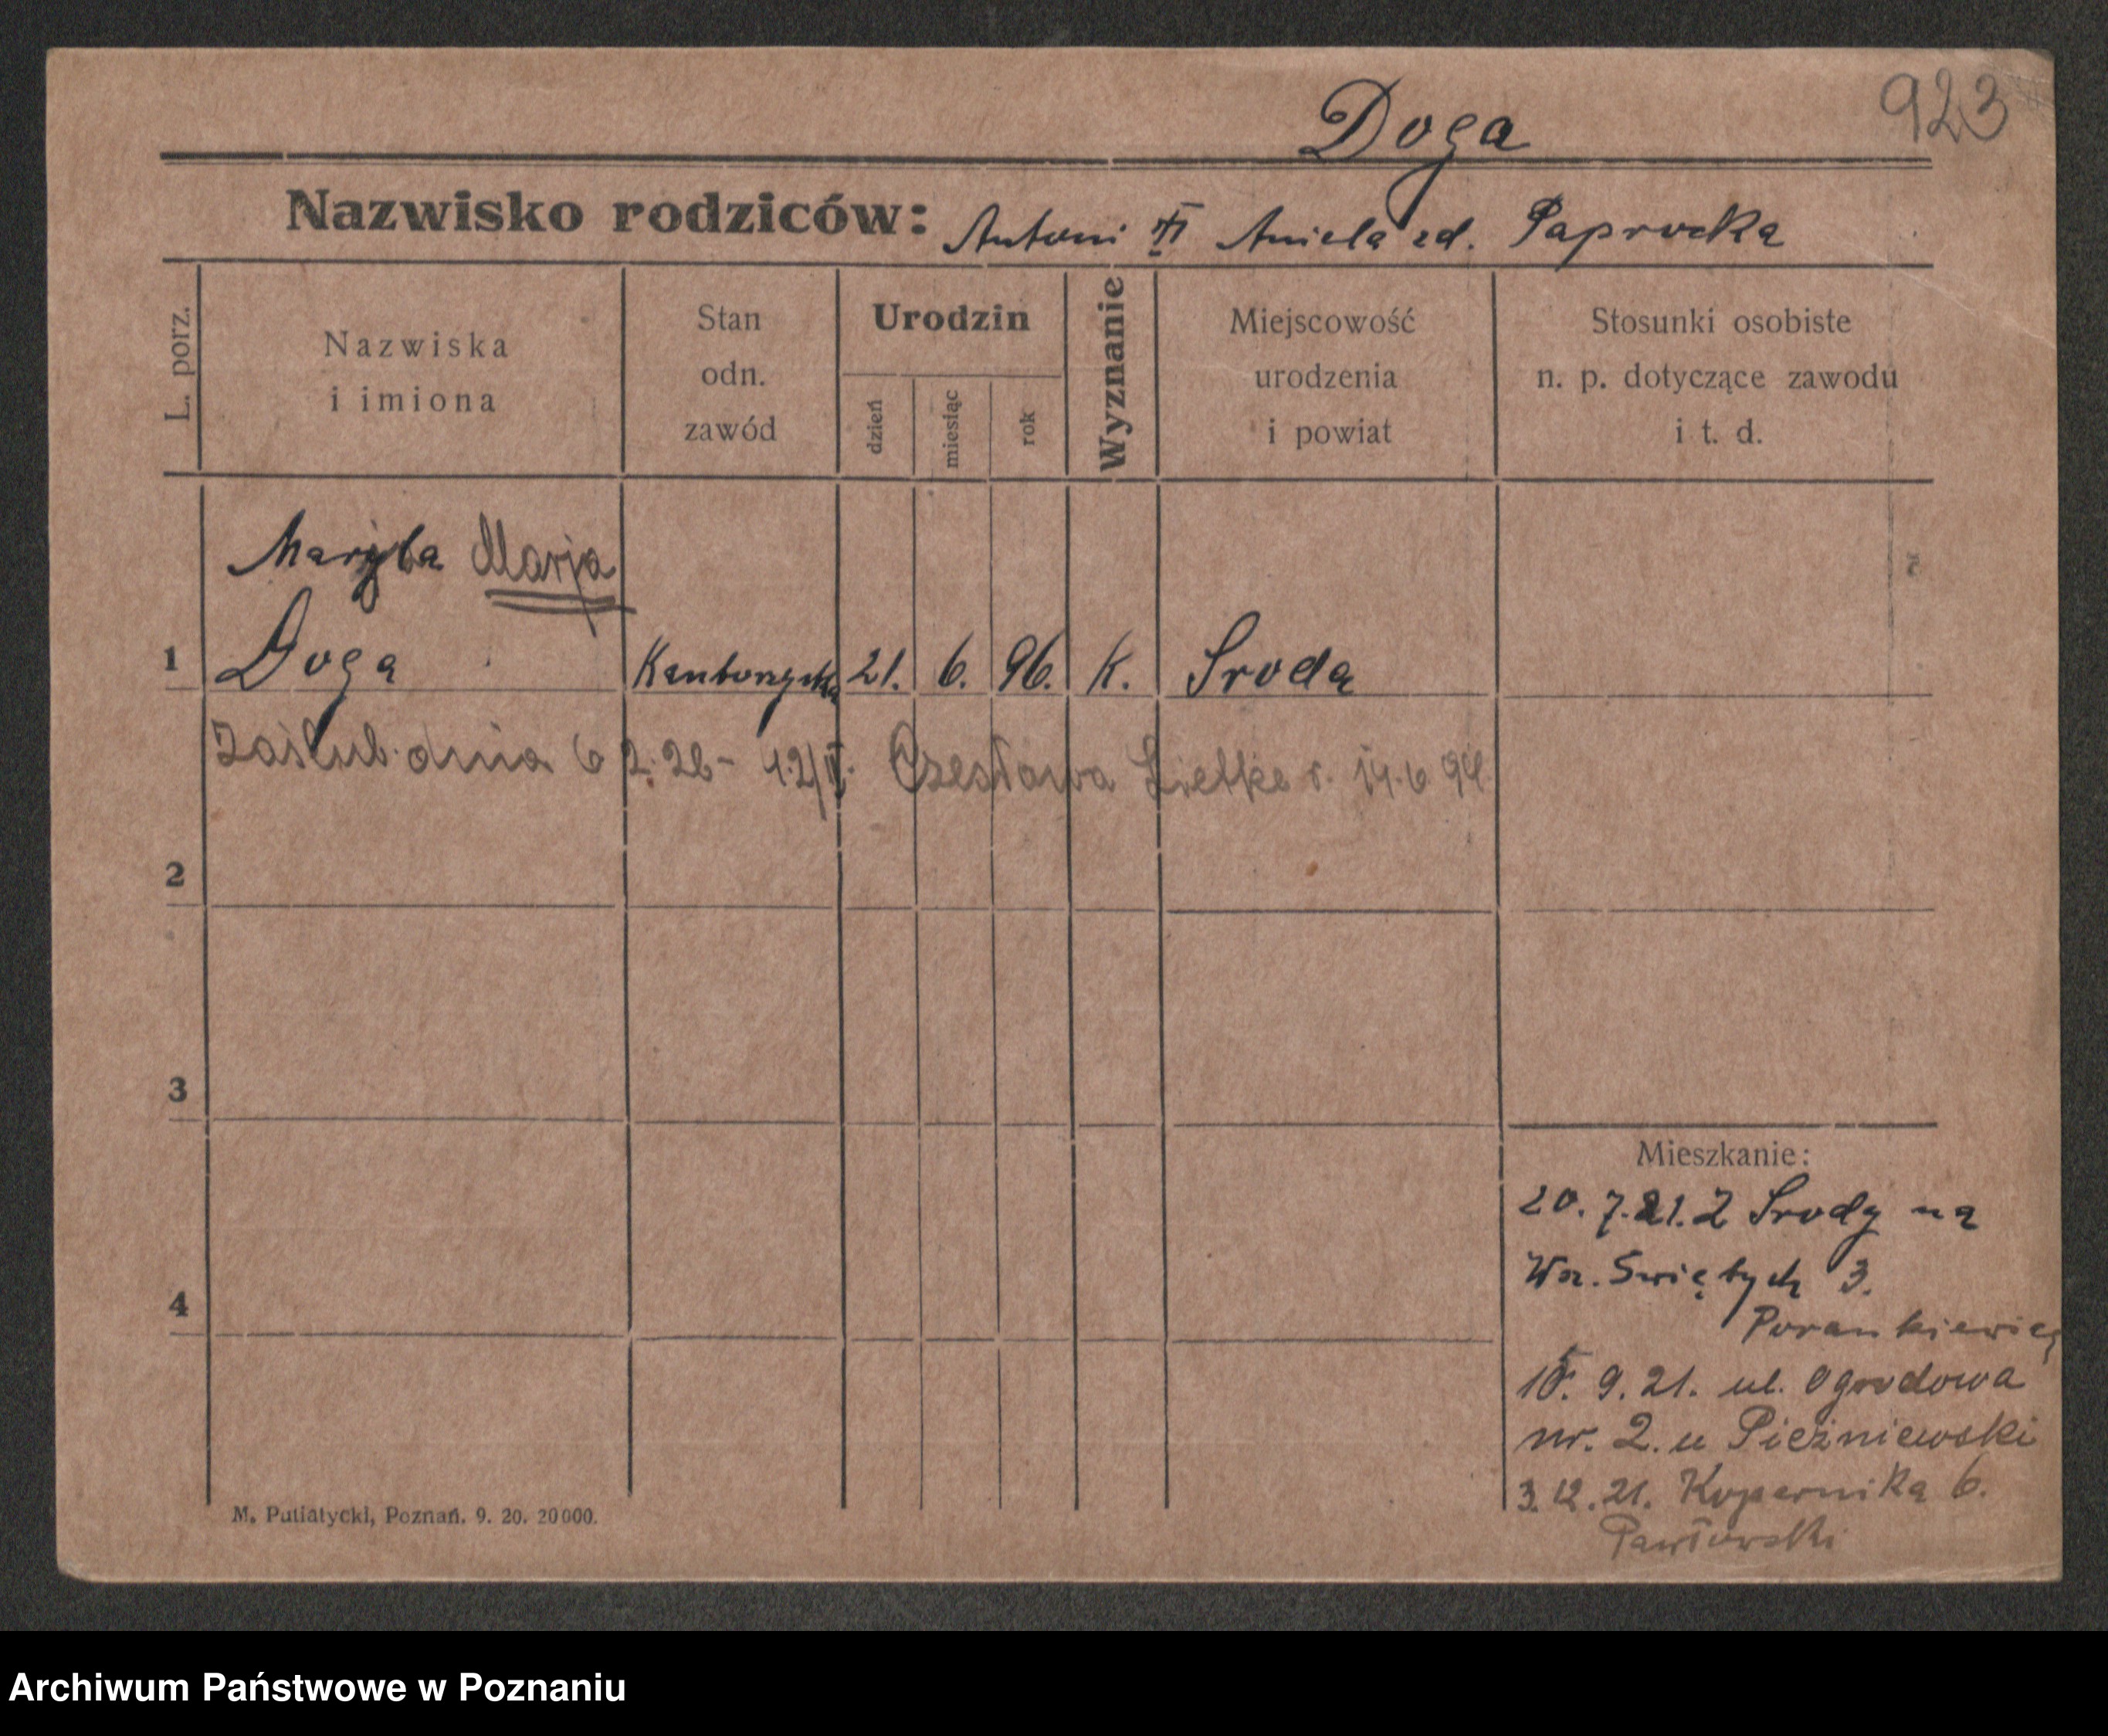 923
Doga
Nazwisko rodziców: Antoni Aniela zd. Paprocka
L. porz.
Nazwiska
i imiona
Stan
odn.
zawód
Urodzin
dzień
miesiąc
rok
Wyznanie
Miejscowość
urodzenia
i powiat
Stosunki osobiste
n. p. dotyczące zawodu
i t. d.
Maryla Marja
1 Doga Kantorzystka 21. 6. 96. K. Sroda
Zaślub. dnia 6 2. 26 - Czesława r. 14. 6 94
2
3
4
Mieszkanie:
20. 7. 21. Z Srody na
Wsz. Swiętych 3.
Porankiewicz
9. 21. ul. Ogrodowa
nr. 2. u
3. 12. 21. Kopernika 6.
Pawłowski
M. Putiatycki, Poznań. 9. 20. 20000.
Archiwum Państwowe w Poznaniu